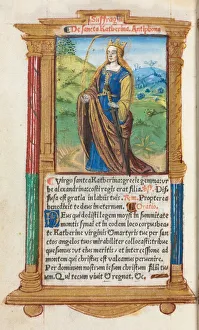 De sancta Katherina. Antiphona
Virgo sancta Katherina: grecie gemma: ur
be alexandrina: costi regis erat filia.
fusa est gratia in labiis tuis. Propterea
benedixit te deus in eternum. Oratio.
Deus qui dedisti legem moysi in summitate
montis sinai et in eodem loco corpus bea
te Katherine virginis et martyris tue per san
ctos angelos tuos mirabiliter collocasti: tribue
ut
ad
montem qui christus est valeamus pervenire.
Per dominum nostrum iesum christum filiū tuū
Qui tecum vivit et regnat. &c.